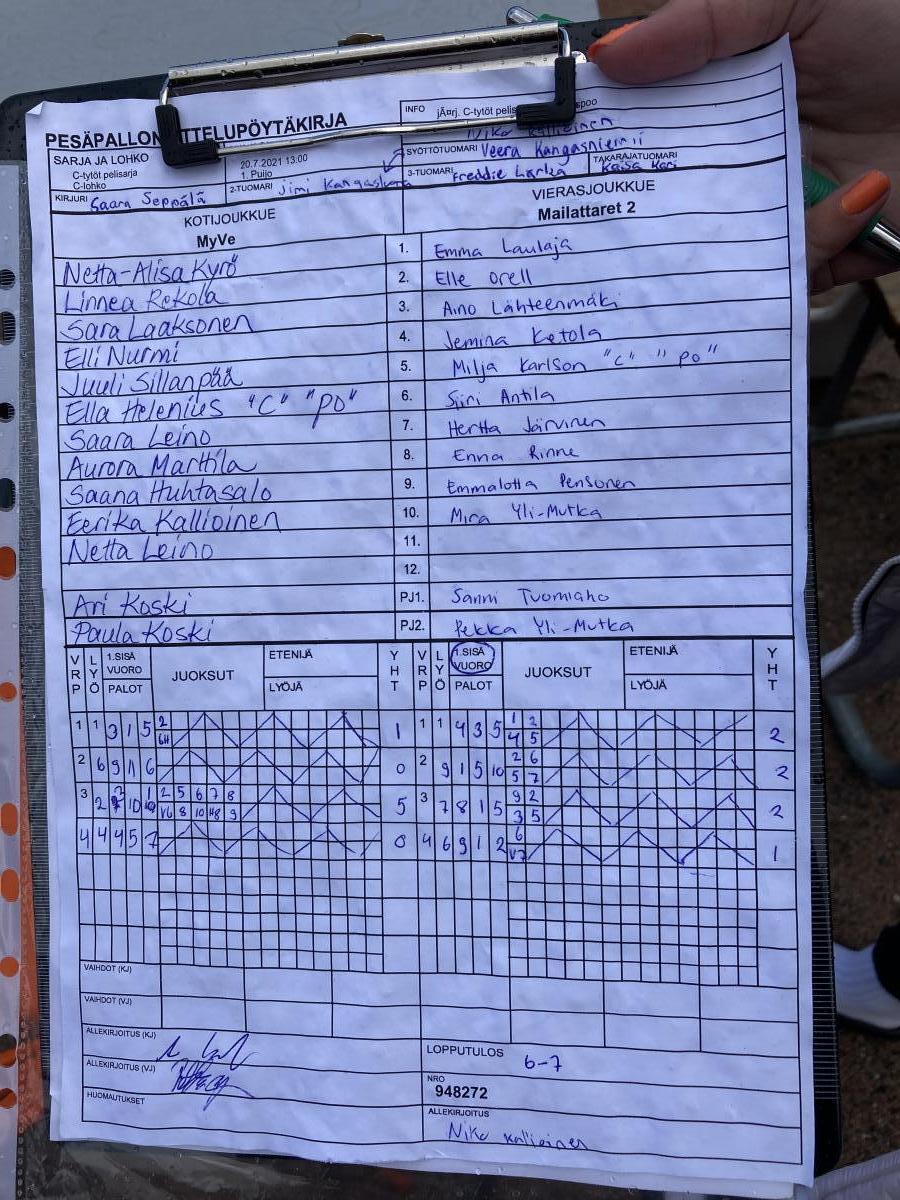 PESÄPALLON OTTELUPÖYTÄKIRJA
INFO jÃ¤rj. C-tytöt
poo
SARJA JA LOHKO
C-tytöt pelisarja
C-lohko
20.7.2021 13:00
1. Puijo
Niko Kallioinen
SYÖTTÖTUOMARI Veera Kangasniemi
KIRJURI Saara Seppälä
2-TUOMARI Jimi
3-TUOMARI Freddie
TAKARAJATUOMARI Kaisa
KOTIJOUKKUE
MyVe
VIERASJOUKKUE
Mailattaret 2
Netta-Alisa Kyrö 1. Emma Laulaja
Linnea Rekola 2. Elle Orell
Sara Laaksonen 3. Aino Lähteenmäki
Elli Nurmi 4. Jemina Ketola
Juuli Sillanpää 5. Milja Karlson "C" "PO"
Ella Helenius "C" "PO" 6. Siiri Antila
Saara Leino 7. Hertta Järvinen
Aurora Marttila 8. Enna Rinne
Saana Huhtasalo 9. Emmalotta Pensonen
Eerika Kallioinen 10. Mira Yli-Mutka
Netta Leino 11.
12.
Ari Koski PJ1. Sanni Tuomiaho
Paula Koski PJ2. Pekka Yli-Mutka
VRP LYÖ 1.SISÄ VUORO PALOT JUOKSUT ETENIJÄ LYÖJÄ YHT VRP LYÖ 1.SISÄ VUORO PALOT JUOKSUT ETENIJÄ LYÖJÄ YHT
1 1 3 1 5 2 1 1 1 4 3 5 1 2 2
4 5
2 6 9 1 6 0 2 9 1 5 10 2 6 2
5 7
3 2 10 2 5 6 7 8 5 3 7 8 1 5 9 2 2
V6 8 10 H8 9 3 5
4 4 4 5 7 0 4 6 9 1 2 6 1
V7
VAIHDOT (KJ)
VAIHDOT (VJ)
ALLEKIRJOITUS (KJ)
LOPPUTULOS 6-7
ALLEKIRJOITUS (VJ)
NRO
948272
HUOMAUTUKSET
ALLEKIRJOITUS
Niko Kallioinen